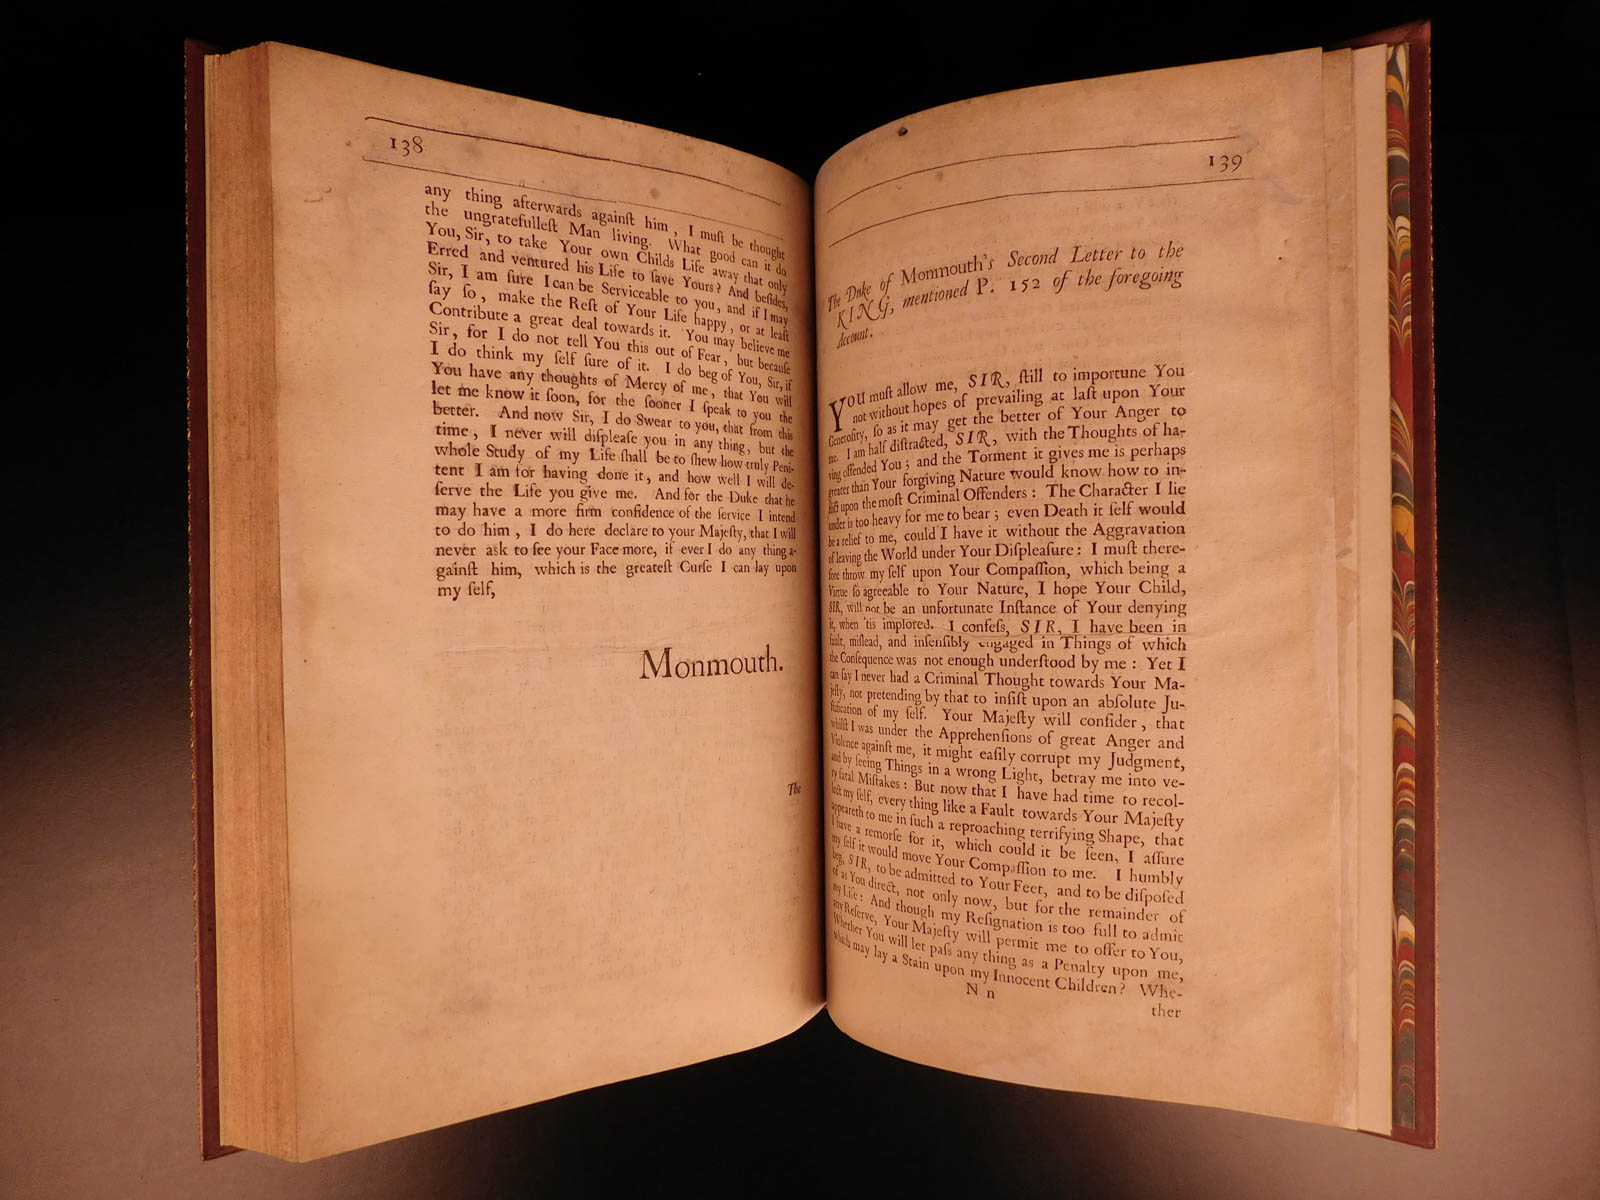 138
any thing afterwards againſt him, I muſt be thought
the ungratefulleſt Man living. What good can it do
You, Sir, to take Your own Childs Life away that only
Erred and ventured his Life to ſave Yours? And beſides,
Sir, I am ſure I can be Serviceable to you, and if I may
ſay ſo, make the Reſt of Your Life happy, or at leaſt
Contribute a great deal towards it. You may believe me
Sir, for I do not tell You this out of Fear, but becauſe
I do think my ſelf ſure of it. I do beg of You, Sir, if
You have any thoughts of Mercy of me, that You will
let me know it ſoon, for the ſooner I ſpeak to you the
better. And now Sir, I do Swear to you, that from this
time, I never will diſpleaſe you in any thing, but the
whole Study of my Life ſhall be to ſhew how truly Peni-
tent I am for having done it, and how well I will de-
ſerve the Life you give me. And for the Duke that he
may have a more firm confidence of the ſervice I intend
to do him, I do here declare to your Majeſty, that I will
never ask to ſee your Face more, if ever I do any thing a-
gainſt him, which is the greateſt Curſe I can lay upon
my ſelf,
Monmouth.
The
139
The Duke of Monmouth's Second Letter to the
KING, mentioned P. 152 of the foregoing
Account.
You muſt allow me, SIR, ſtill to importune You
not without hopes of prevailing at laſt upon Your
Generoſity, ſo as it may get the better of Your Anger to
me. I am half diſtracted, SIR, with the Thoughts of ha-
ving offended You; and the Torment it gives me is perhaps
greater than Your forgiving Nature would know how to in-
flict upon the moſt Criminal Offenders: The Character I lie
under is too heavy for me to bear; even Death it ſelf would
be a relief to me, could I have it without the Aggravation
of leaving the World under Your Diſpleaſure: I muſt there-
fore throw my ſelf upon Your Compaſſion, which being a
Virtue ſo agreeable to Your Nature, I hope Your Child,
SIR, will not be an unfortunate Inſtance of Your denying
it, when 'tis implored. I confeſs, SIR, I have been in
fault, miſlead, and inſenſibly engaged in Things of which
the Conſequence was not enough underſtood by me: Yet I
can ſay I never had a Criminal Thought towards Your Ma-
jeſty, not pretending by that to inſiſt upon an abſolute Ju-
ſtification of my ſelf. Your Majeſty will conſider, that
whilſt I was under the Apprehenſions of great Anger and
Violence againſt me, it might eaſily corrupt my Judgment,
and by ſeeing Things in a wrong Light, betray me into ve-
ry fatal Miſtakes: But now that I have had time to recol-
lect my ſelf, every thing like a Fault towards Your Majeſty
appeareth to me in ſuch a reproaching terrifying Shape, that
I have a remorſe for it, which could it be ſeen, I aſſure
my ſelf it would move Your Compaſſion to me. I humbly
beg, SIR, to be admitted to Your Feet, and to be diſpoſed
of as You direct, not only now, but for the remainder of
my Life: And though my Reſignation is too full to admit
any Reſerve, Your Majeſty will permit me to offer to You,
Whether You will let paſs any thing as a Penalty upon me,
which may lay a Stain upon my Innocent Children? Whe-
N n
ther